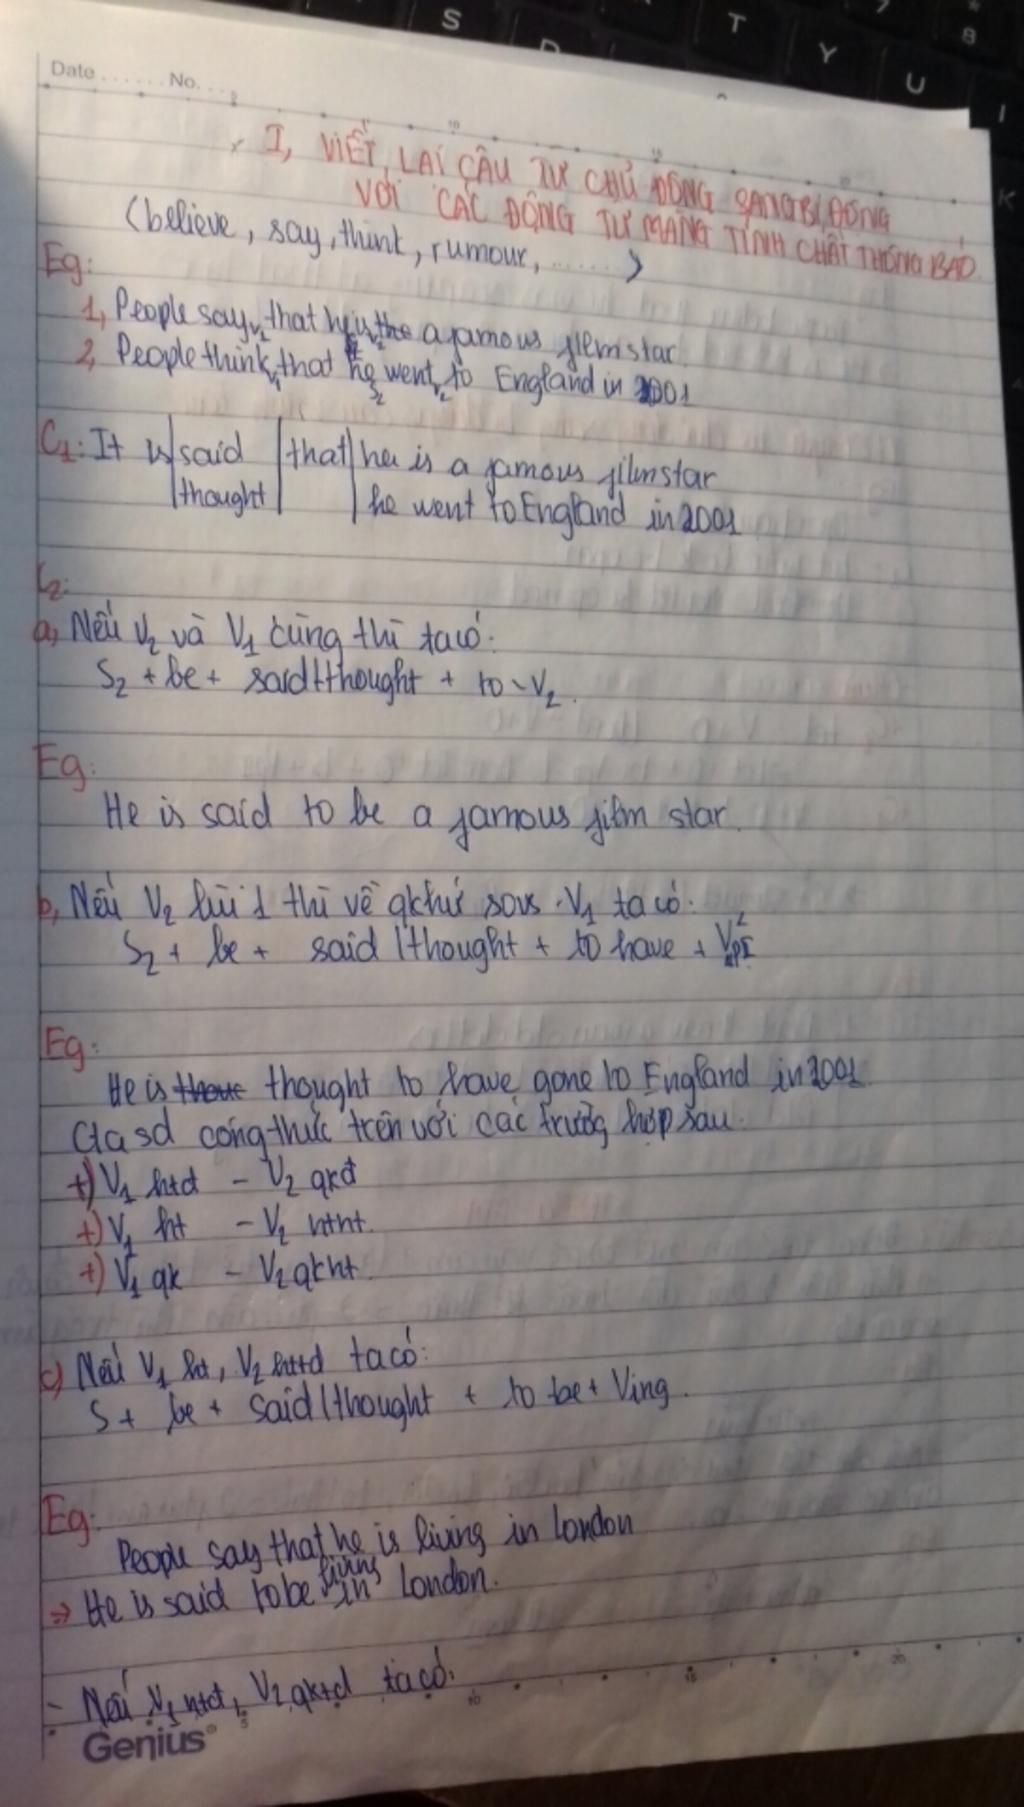 S
D
T
Y
7
U
8
I
K
Date ...... No. ...
I, VIẾT LẠI CÂU TỪ CHỦ ĐỘNG SANG BỊ ĐỘNG
VỚI CÁC ĐỘNG TỪ MANG TÍNH CHẤT THÔNG BÁO
(believe, say, think, rumour, ......)
Eg:
1, People say that he is the a famous film star
2, People think that he went to England in 2001
C1: It is said that he is a famous film star
thought he went to England in 2001
C2:
a, Nếu V2 và V1 cùng thì ta có:
S2 + be + said/thought + to - V2.
Eg:
He is said to be a famous film star.
b, Nếu V2 lùi 1 thì về qkhứ so vs V1 ta có:
S2 + be + said /thought + to have + VpII
Eg:
He is thought to have gone to England in 2001
Cta sd công thức trên với các trường hợp sau:
+) V1 htđ - V2 qkđ
+) V1 ht - V2 htht.
+) V1 qk - V2 qkht.
c) Nếu V1 ht, V2 httd ta có:
S + be + said/thought + to be + Ving.
Eg:
People say that he is living in london
⇒ He is said to be living in London.
- Nếu V1 htđ, V2 qktd ta có:
Genius
5
10
15
20